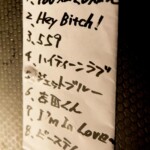 2. Hey Bitch!
3. 559
4. ハイティーンラブ♡
5. ジェットブルー
6. 吉田くん
7. I'm In Love
8.